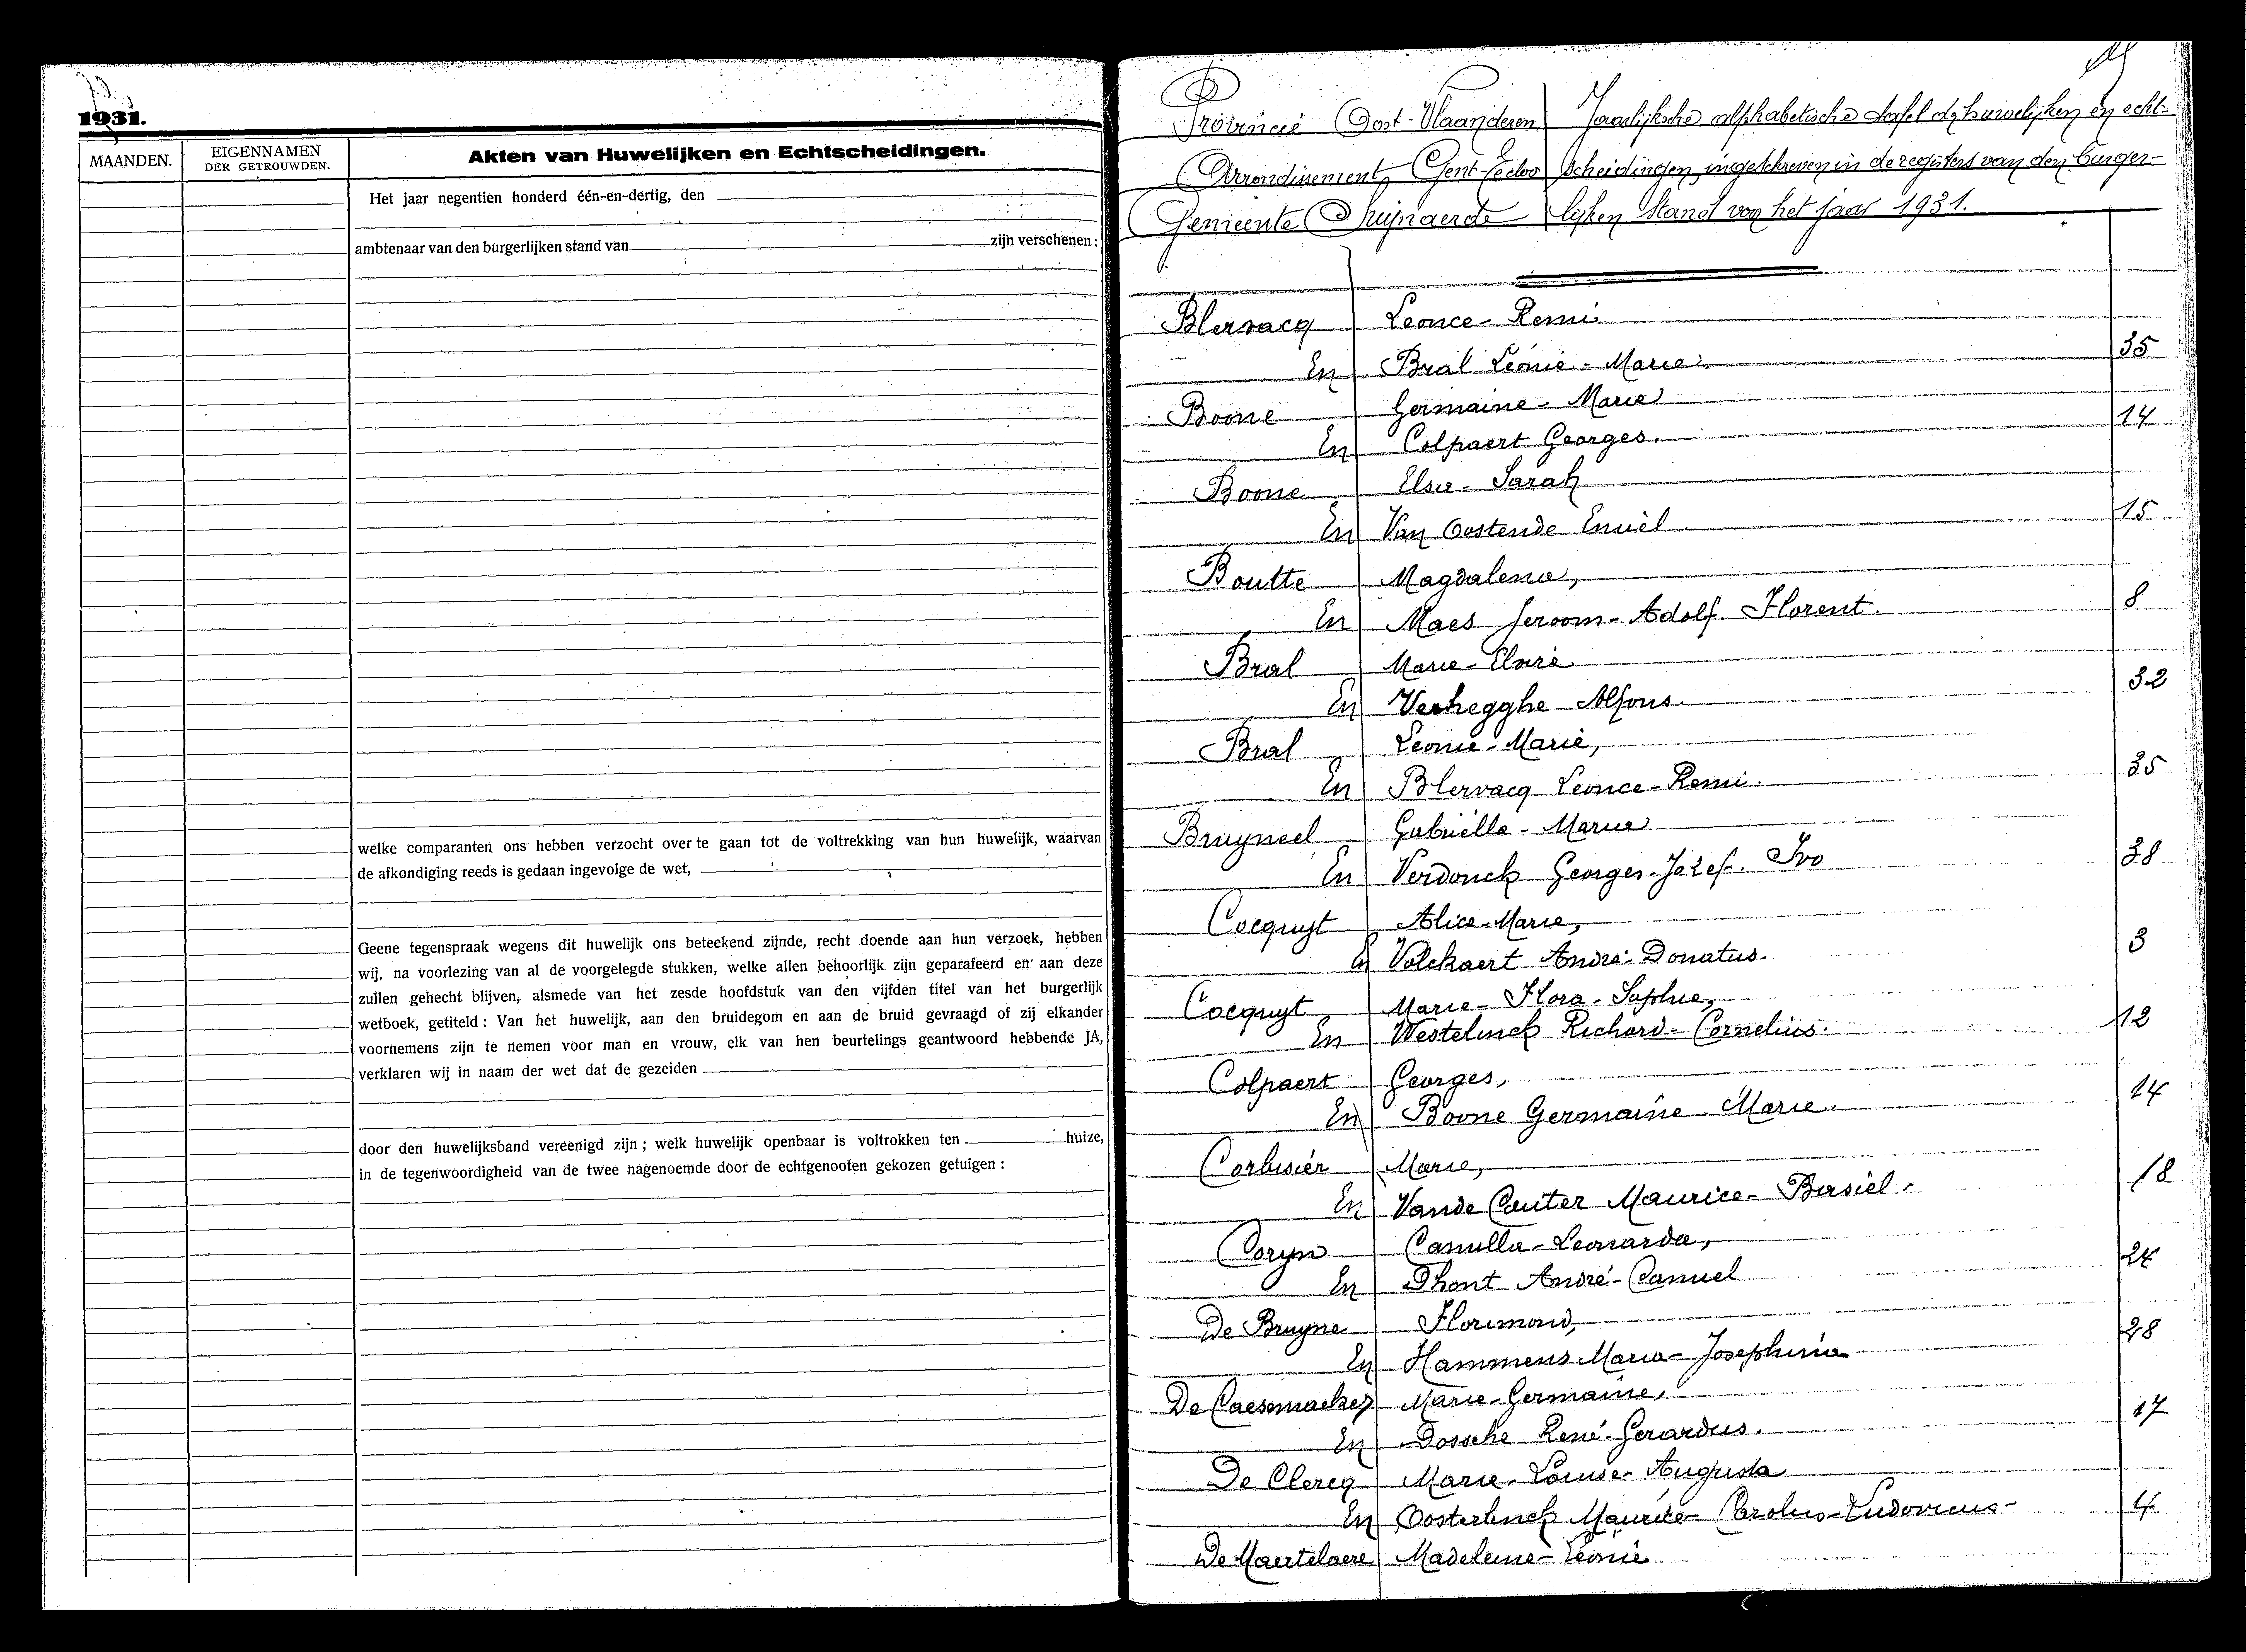 1931.
MAANDEN.
EIGENNAMEN
DER GETROUWDEN.
Akten van Huwelijken en Echtscheidingen.
Het jaar negentien honderd één-en-dertig, den
ambtenaar van den burgerlijken stand van zijn verschenen:
welke comparanten ons hebben verzocht over te gaan tot de voltrekking van hun huwelijk, waarvan
de afkondiging reeds is gedaan ingevolge de wet,
Geene tegenspraak wegens dit huwelijk ons beteekend zijnde, recht doende aan hun verzoek, hebben
wij, na voorlezing van al de voorgelegde stukken, welke allen behoorlijk zijn geparafeerd en aan deze
zullen gehecht blijven, alsmede van het zesde hoofdstuk van den vijfden titel van het burgerlijk
wetboek, getiteld: Van het huwelijk, aan den bruidegom en aan de bruid gevraagd of zij elkander
voornemens zijn te nemen voor man en vrouw, elk van hen beurtelings geantwoord hebbende JA,
verklaren wij in naam der wet dat de gezeiden
door den huwelijksband vereenigd zijn; welk huwelijk openbaar is voltrokken ten huize,
in de tegenwoordigheid van de twee nagenoemde door de echtgenooten gekozen getuigen:
Provincie Oost-Vlaanderen
Arrondissement Gent-Eecloo
Gemeente Swijnaerde
Jaarlijksche alphabetische tafel der huwelijken en echt-
scheidingen, ingeschreven in de registers van den burger-
lijken stand van het jaar 1931.
Blervacq Leonce-Remi
En Bral Leonie-Marie 35
Boone Germaine-Marie
En Colpaert Georges. 14
Boone Elsa-Sarah
En Van Oostende Emiel 15
Boutte Magdalena,
En Maes Jeroom-Adolf-Florent. 8
Bral Marie-Elvire
En Verhegghe Alfons. 32
Bral Leonie-Marie,
En Blervacq Leonce-Remi. 35
Bruyneel Gabriëlla-Maria
En Verdonck Georges-Jozef-Ivo 38
Cocquyt Alice-Marie,
En Volckaert André-Donatus. 3
Cocquyt Marie-Flora-Sophie,
En Westelinck Richard-Cornelius. 12
Colpaert Georges,
En Boone Germaine-Marie. 14
Corbisier Marie,
En Vande Cauter Maurice-Basiel. 18
Coryn Camilla-Leonarda,
En Dhont André-Camiel 24
De Bruyne Florimond,
En Hammens Maria-Josephina 28
De Caesemaeker Marie-Germaine,
En Dossche René-Gerardus. 17
De Clercq Marie-Louise-Augusta
En Oosterlinck Maurice-Carolus-Ludovicus- 4
De Maertelaere Madeleine-Léonie